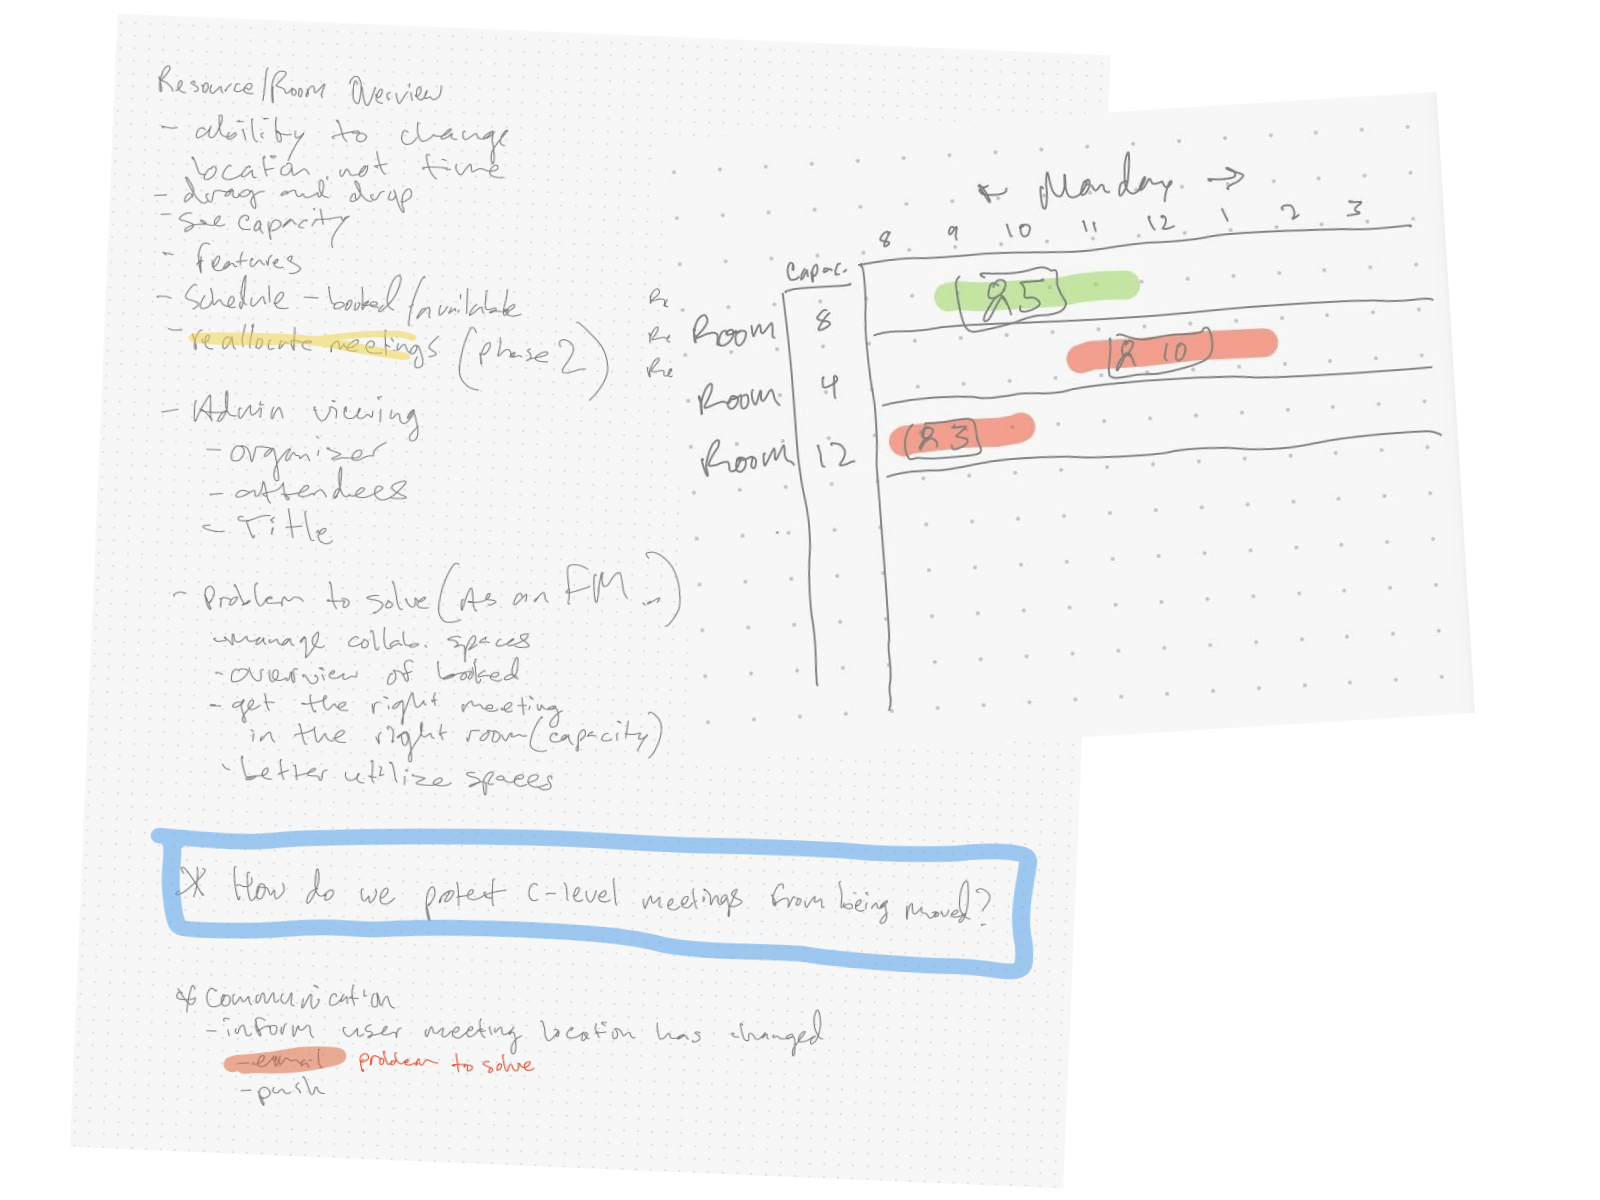 Resource/Room Overview
- ability to change
location not time
- drag and drop
- see capacity
- features
- Schedule - booked/available
- reallocate meetings (phase 2)
- Admin viewing
- organizer
- attendees
- Title
- Problem to solve (As an FM ...)
- manage collab. spaces
- overview of booked
- get the right meeting
in the right room (capacity)
- better utilize spaces
* How do we protect C-level meetings from being moved?
* Communication
- inform user meeting location has changed
- email problem to solve
- push
← Monday →
8 9 10 11 12 1 2 3
Capac.
Room 8 5
Room 4 10
Room 12 3